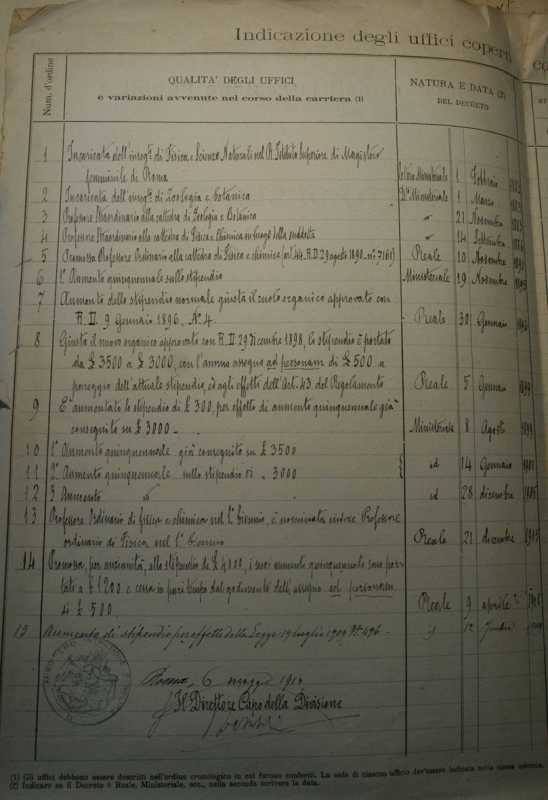 Indicazione degli uffici coperti
Num. d'ordine
QUALITA' DEGLI UFFICI
e variazioni avvenute nel corso della carriera (1)
NATURA E DATA (2)
DEL DECRETO
1 Incaricata dell'inseg.to di Fisica e Scienze Naturali nel R. Istituto Superiore di Magistero
femminile di Roma Ministeriale 1 Febbraio
2 Incaricata dell'inseg.to di Zoologia e botanica D.o Ministeriale 1 Marzo
3 Professore Straordinario alla cattedra di Zoologia e Botanica " 21 Novembre
4 Professore Straordinario alla cattedra di Fisica e Chimica in luogo della suddetta " 14 Settembre
5 Promossa Professore Ordinario alla cattedra di Fisica e chimica (art. 44. R.D. 29 agosto 1890. n.o 7161) Reale 10 Novembre
6 1o Aumento quinquennale sullo stipendio Ministeriale 19 Novembre
7 Aumento dello stipendio normale giusta il ruolo organico approvato con
R. D. 9 Gennaio 1896, No. 4. Reale 30 Gennaio
8 Giusta il nuovo organico approvato con R. D. 29 Dicembre 1898, lo stipendio è portato
da £ 3500 a £ 3000, con l'annuo assegno ad personam di £ 500 a
pareggio dell'attuale stipendio, e agli effetti dell'Art. 43 del Regolamento Reale 5 Gennaio 1899
9 E' aumentato lo stipendio di £ 300, per effetto di aumento quinquennale già
conseguito su £ 3000 - Ministeriale 8 Agosto 1899
10 1o Aumento quinquennale già conseguito su £ 3500
11 2o Aumento quinquennale sullo stipendio di " 3000 id 14 Gennaio 1901
12 3 Aumento " id 28 dicembre 1905
13 Professore Ordinario di fisica e chimica nel 1o biennio, è nominata invece Professore
ordinario di Fisica nel 1o biennio Reale 21 dicembre 1905
14 Promossa, per anzianità, allo stipendio di £ 4000, i suoi aumenti quinquennali sono por-
tati a £ 1200 e cessa in pari tempo dal godimento dell'assegno ad personam
di £ 500. Reale 9 aprile
15 Aumento di stipendio per effetto della Legge 19 luglio 1909 No. 496 - 12
Roma, 6 maggio 1910
Il Direttore Capo della Divisione
(1) Gli uffici debbono essere descritti nell'ordine cronologico in cui furono conferiti. La sede di ciascun ufficio dev'essere indicata nella stessa colonna.
(2) Indicare se il Decreto è Reale, Ministeriale, ecc., nella seconda scrivere la data.